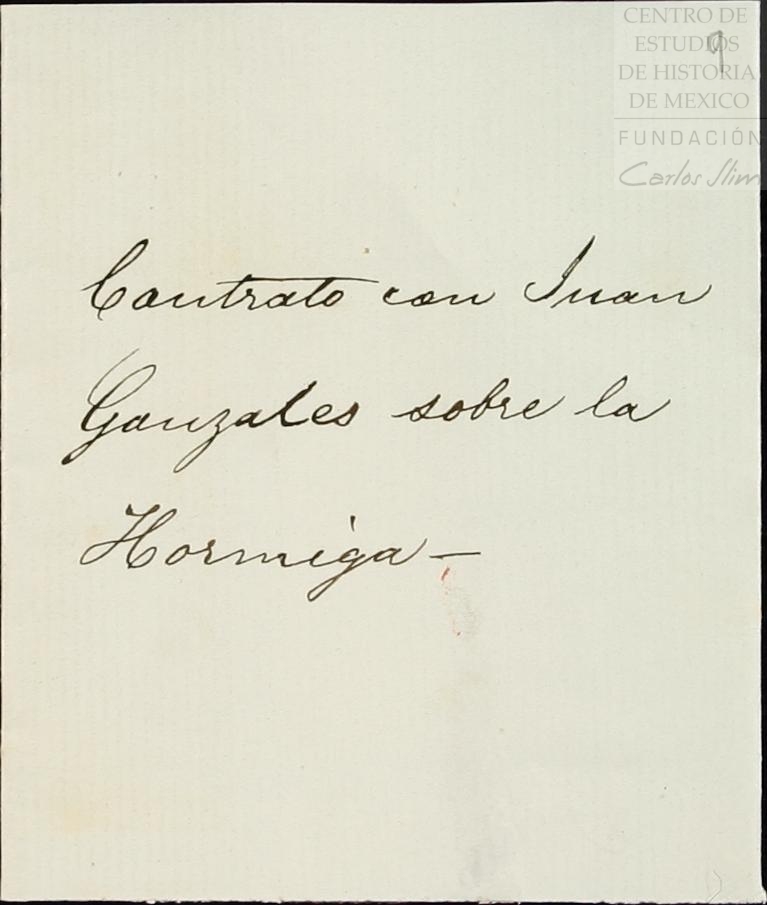 CENTRO DE
ESTUDIOS
DE HISTORIA
DE MEXICO
FUNDACIÓN
Carlos Slim
9
Contrato con Juan
Gonzales sobre la
Hormiga —